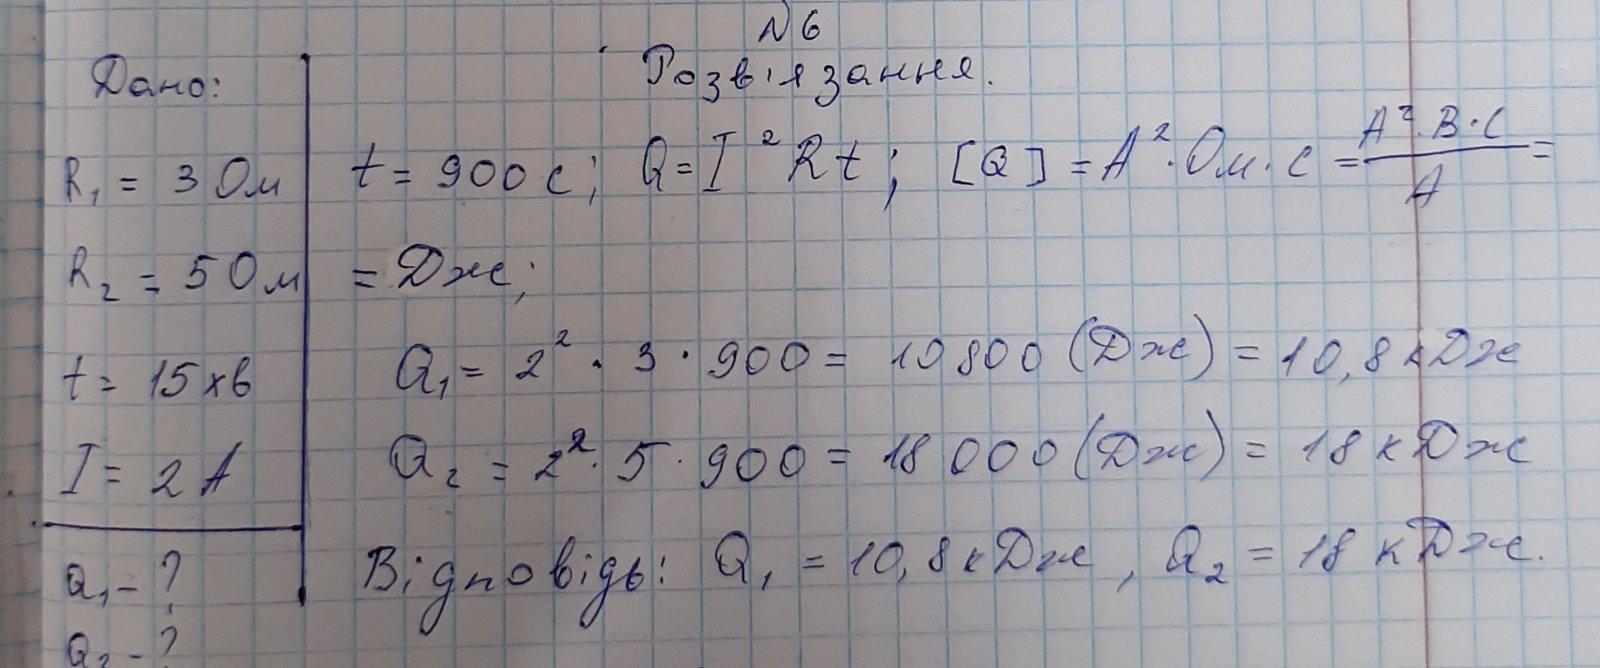 №6
Дано:
Розв'язання.
R₁ = 3 Ом
R₂ = 5 Ом
t = 15 хв
I = 2 А
Q₁ - ?
Q₂ - ?
t = 900 с; Q = I² R t; [Q] = А² · Ом · с = А² · В · с / А =
= Дж;
Q₁ = 2² · 3 · 900 = 10800 (Дж) = 10,8 кДж
Q₂ = 2² · 5 · 900 = 18000 (Дж) = 18 кДж
Відповідь: Q₁ = 10,8 кДж, Q₂ = 18 кДж.